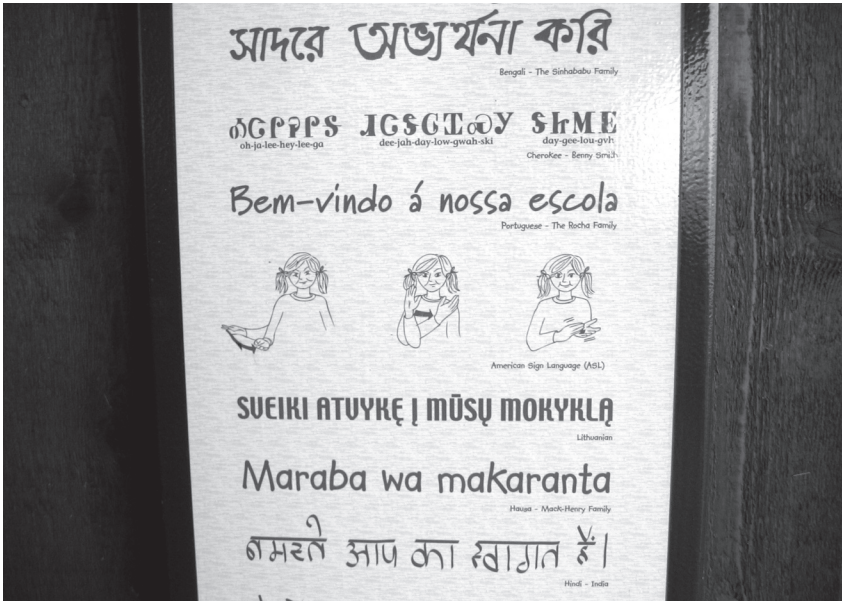 সাদরে অভ্যর্থনা করি
Bengali - The Sinhababu Family
ᎣᏣᎵᎮᎵᎦ ᏗᏣᏕᎶᏆᏍᎩ ᏕᎨᎷᎬ
oh-ja-lee-hey-lee-ga dee-jah-day-low-gwah-ski day-gee-lou-gvh
Cherokee - Benny Smith
Bem-vindo á nossa escola
Portuguese - The Rocha Family
American Sign Language (ASL)
SVEIKI ATVYKĘ Į MŪSŲ MOKYKLĄ
Lithuanian
Maraba wa makaranta
Hausa - Mack-Henry Family
नमस्ते आप का स्वागत हैं।
Hindi - India